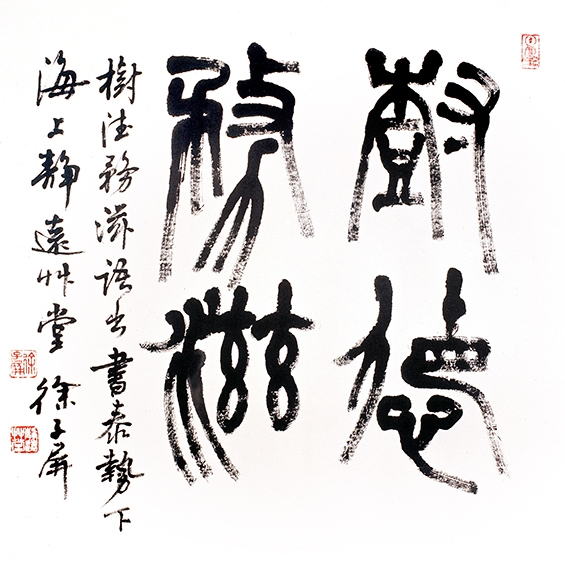 樹德
務滋
樹德務滋語出書泰勢下
海上靜遠艸堂徐子屏